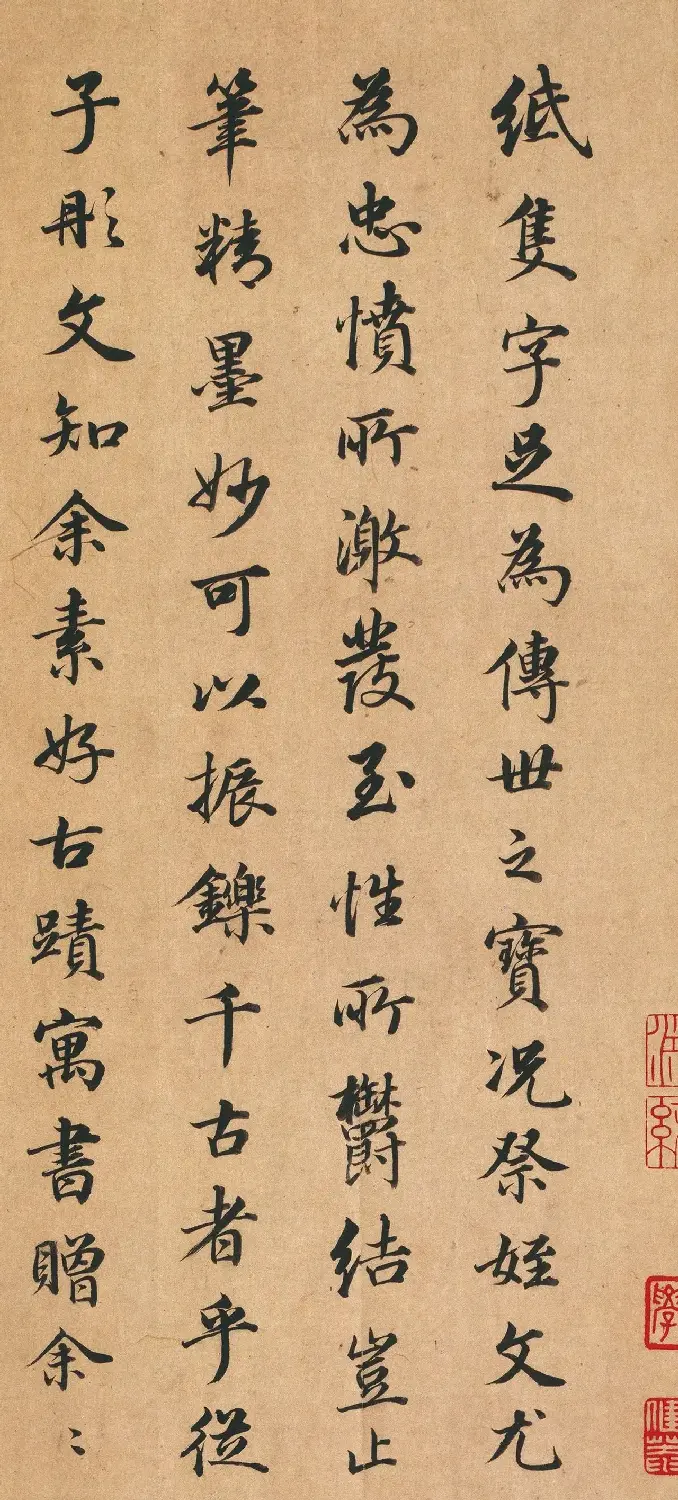 紙隻字足為傳世之寶况祭姪文尤
為忠憤所激發至性所鬱結豈止
筆精墨妙可以振鑠千古者乎從
子彤文知余素好古蹟寓書贈余〻